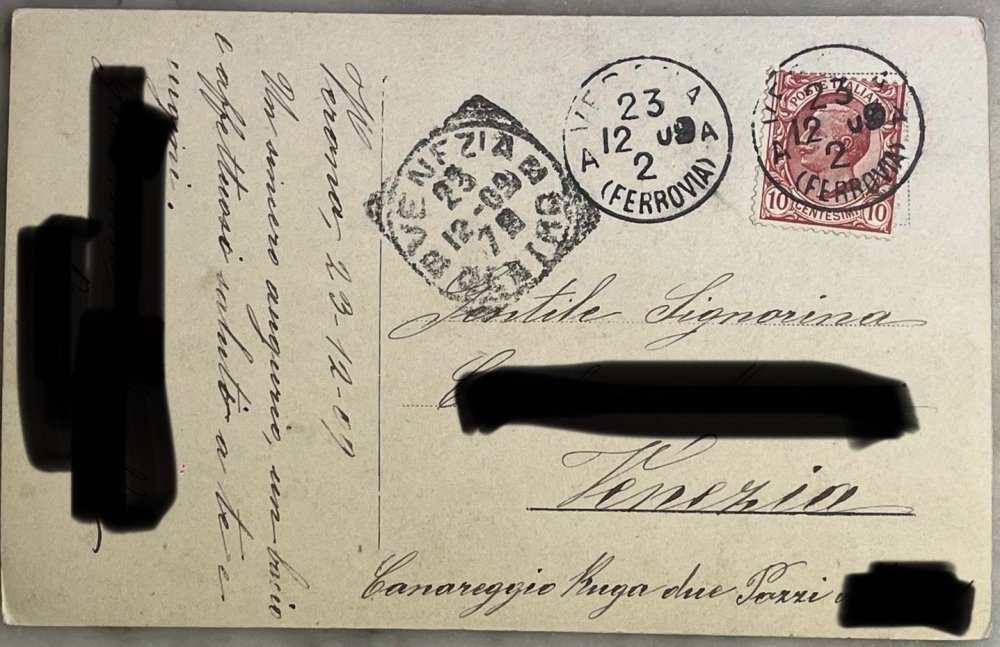 W
Verona, 23-12-09
Un sincero augurio, un bacio
e affettuosi saluti a te e
VENEZIA
23
12-09
7
23
12 09
2
A A
(FERROVIA)
POSTE ITALIANE
23
12 09
2
A A
(FERROVIA)
10 CENTESIMI 10
Gentile Signorina
Venezia
Canareggio Ruga due Pozzi